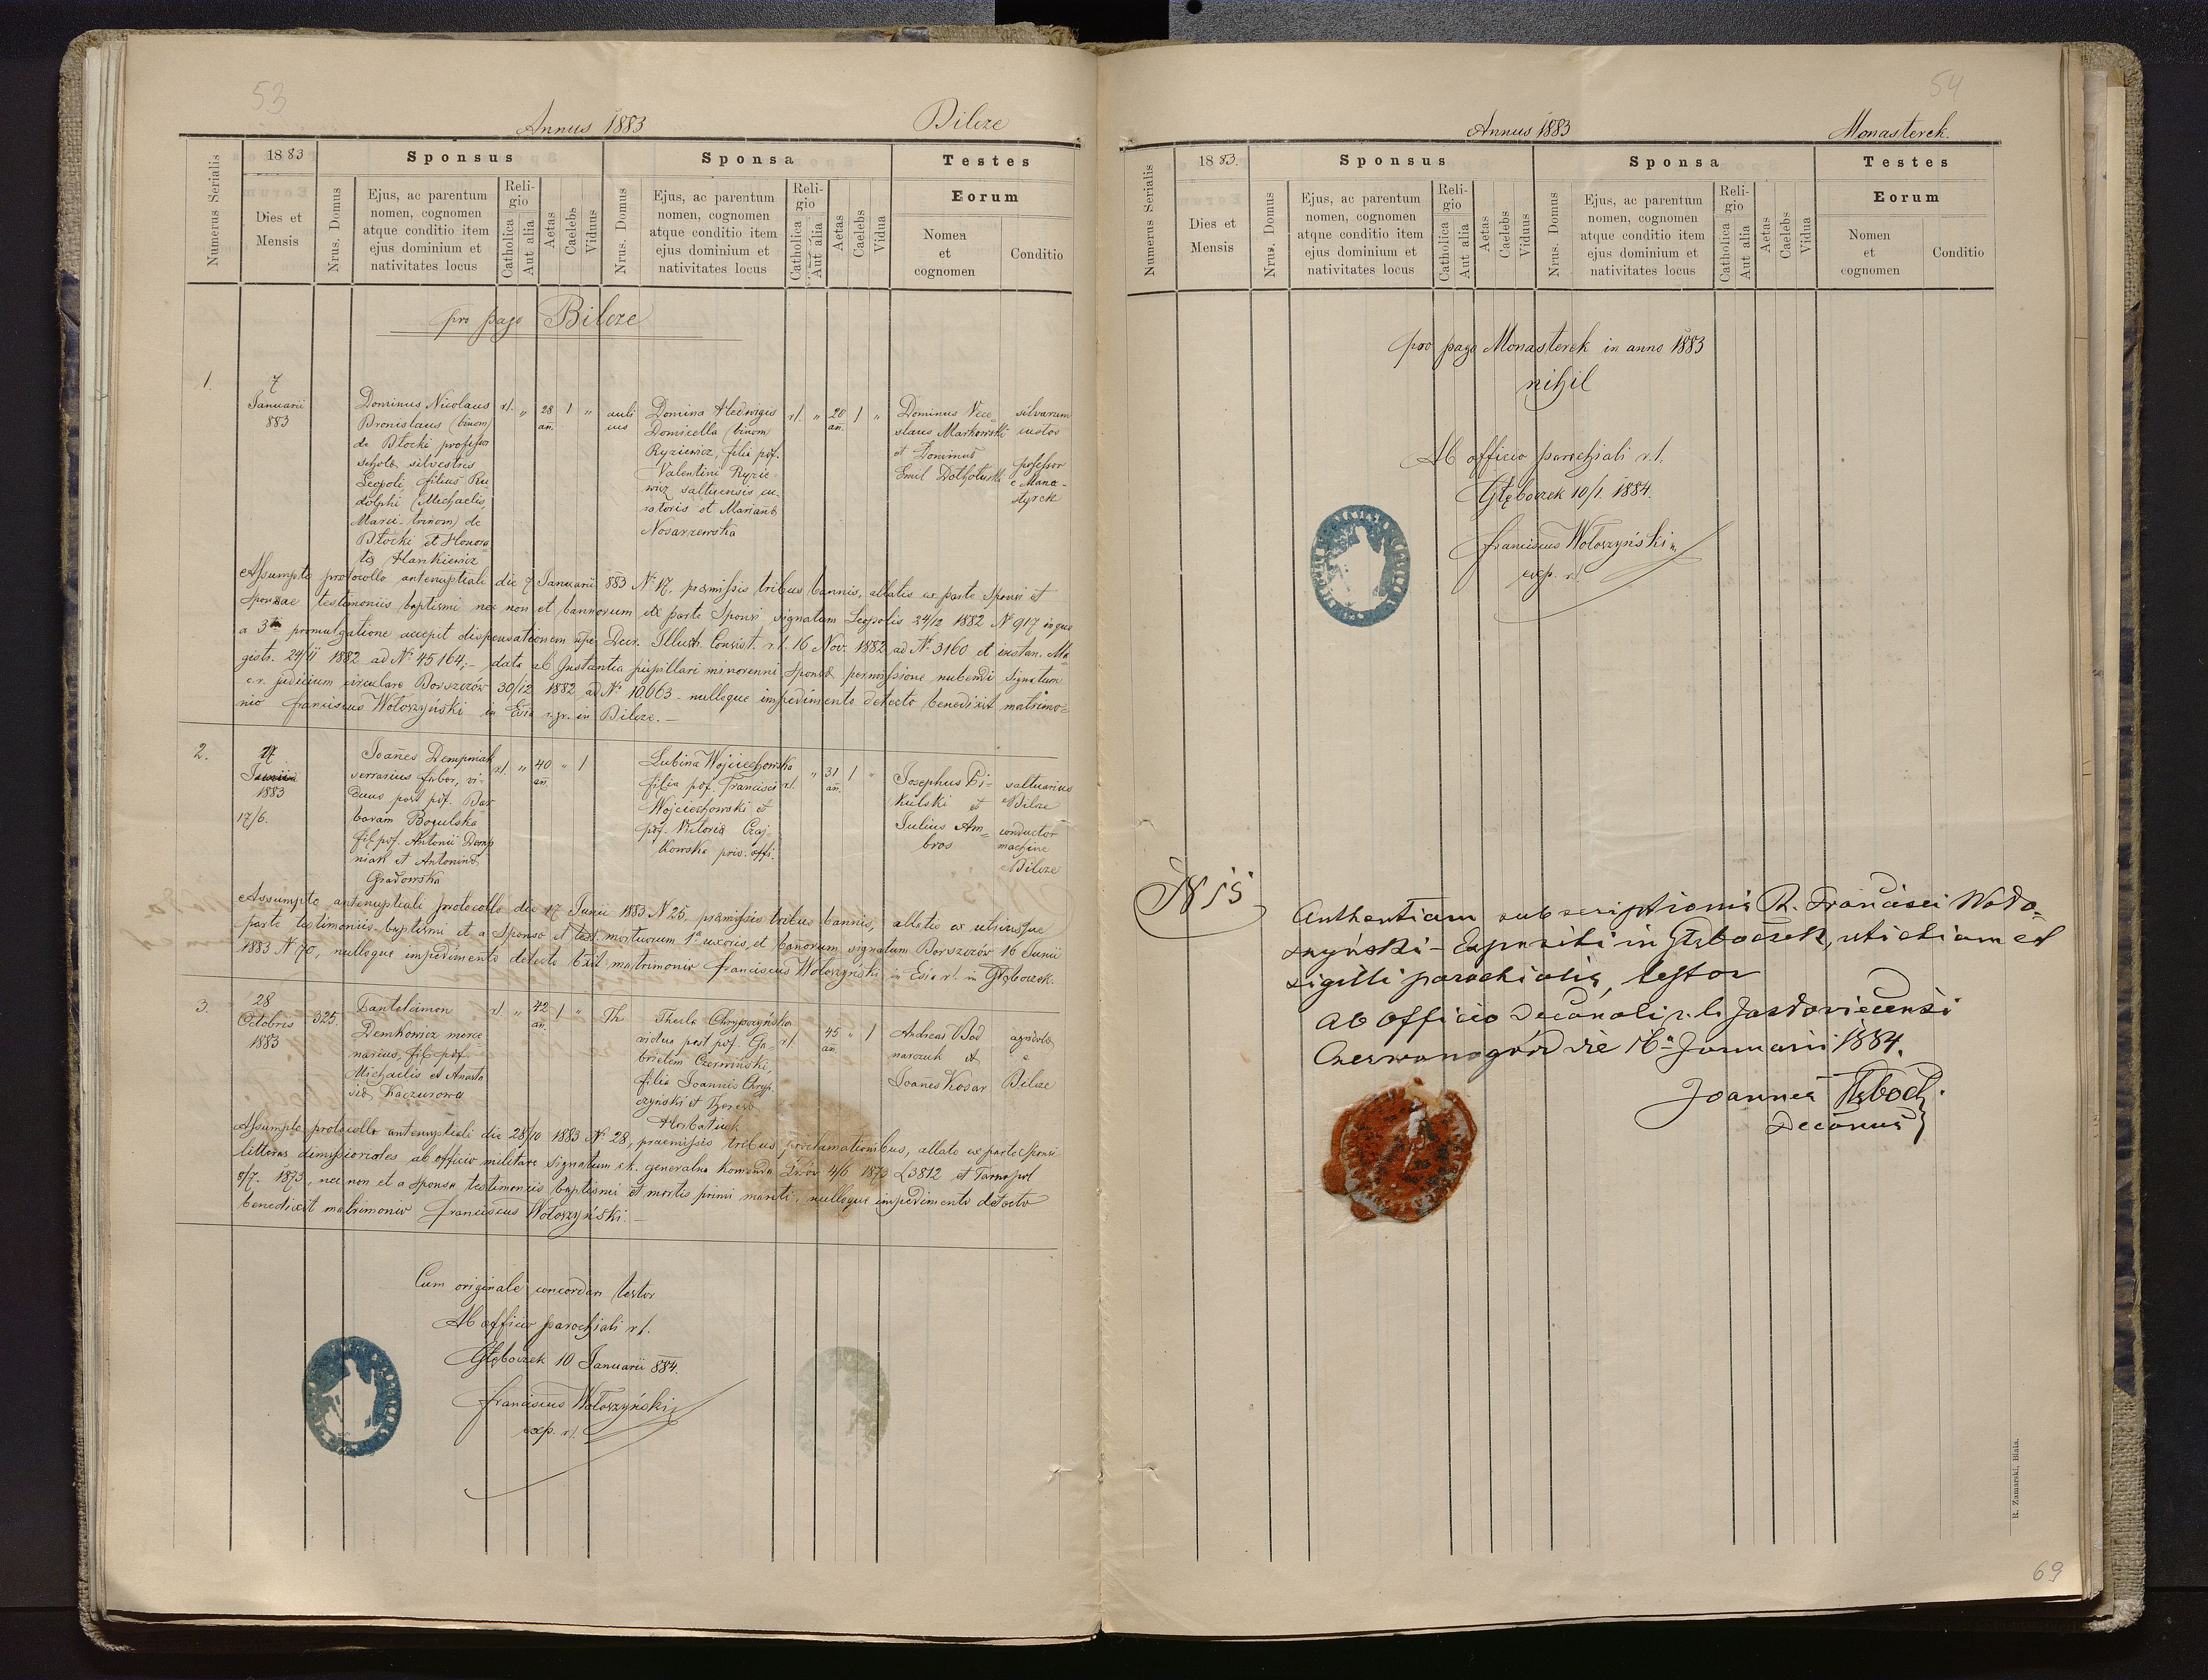 53
Annus 1883
Bilcze
Numerus Serialis
1883
Dies et
Mensis
Sponsus
Nrus. Domus
Ejus, ac parentum
nomen, cognomen
atque conditio item
ejus dominium et
nativitates locus
Reli-
gio
Catholica
Aut alia
Aetas
Caelebs
Viduus
Sponsa
Nrus. Domus
Ejus, ac parentum
nomen, cognomen
atque conditio item
ejus dominium et
nativitates locus
Reli-
gio
Catholica
Aut alia
Aetas
Caelebs
Vidua
Testes
Eorum
Nomen
et
cognomen
Conditio
pro pago Bilcze
1.
7
Januarii
883
Dominus Nicolaus
Bronislaus (binom)
de Błocki professor
scholæ silvestris
Leopoli, filius Ru
dolphi (Michaelis,
Marci - trinom) de
Błocki et Honora
tæ Hankiewicz
rl. „ 28 an. 1 „
auli
cus
Domina Hedwigis
Domicella (binom)
Ryziewicz, filia pdf.
Valentini Ryzie-
wicz saltuensis cu-
ratoris et Mariannæ
Nosarzewska
rl. „ 20 an. 1 „
Dominus Vece-
slaus Markowski
et Dominus
Emil
silvarum
custos
professor
e Mona-
styrek
Assumpto protocollo antenuptiali die 7 Januarii 883 N: 17. præmissis tribus bannis, allatis ex parte Sponsi et
Sponsae testimoniis baptismi nec non et bannorum ex parte Sponsi signatum Leopolis 24/12 1882 N 917 in quo
a 3tia promulgatione accepit dispensationem Decr. Illust. Consist. r.l. 16 Nov. 1882 ad N: 3160 et instan. Ma-
gistr. 24/11 1882 ad N: 45164; - data ab Instantia pupillari minorenni Sponsæ permissione nubendi signatum
c.r. judicium circulare Borszczów 30/12 1882 ad N: 10663 - nulloque impedimento detecto benedixit matrimo-
nio Franciscus Wołoszyński in Ecsia r.gr. in Bilcze. -
2.
17
Junii
1883
17/6.
Joañes Dempniak
serrarius faber, vi-
duus post pdf. Bar
baram Bogulska
fil. pdf. Antonii Demp
niak et Antoninæ
Gradowska
rl. „ 40 an. „ 1
Lubina Wojciechowska
filia pdf. Francisci
Wojciechowski et
pdf. Victoria Czaj-
kowska priv. offi.
rl. „ 31 an. 1 „
Josephus Pi-
kulski et
Julius Am-
bros
saltuarius
Bilcze
conductor
machine
Bilcze
Assumpto antenuptiali protocollo die 17 Junii 1883 N 25. præmissis tribus bannis, allatis ex utriusque
parte testimoniis baptismi et a Sponso et test. mortuorum 1æ uxoris, et banorum signatum Borszczów 16 Junii
1883 N 70, nulloque impedimento detecto bxit matrimonio Franciscus Wołoszyński in Esia rl. in Głęboczek.
3.
28
Octobris
1883
325.
Pantelaimon
Demkowicz merce
narius, fil. pdf.
Michaelis et Anasta
siæ Kaczurowa
rl. „ 42 an. 1 „
Th
Thecla Chrypczyńska
vidua post pdf. Ga-
brielem Czerwiński,
filia Joannis Chryp-
czyński et Theresæ
Horbatiuk
rl. 45 an. „ 1
Andreas Bod
narczuk et
Joañes Kosar
agricolæ
e
Bilcze
Assumpto protocollo antenuptiali die 28/10 1883 N: 28, praemissis tribus proclamationibus, allato ex parte Sponsi
litteras dimissoriales ab officio militare signatum c.k. generalna komenda Lwów 4/6 1873 L3812 et Tarnopol
8/7. 1873, nec non et a sponsa testimoniis baptismi et mortis primi mariti, nulloque impedimento detecto
benedixit matrimonio Franciscus Wołoszyński. -
Cum originale concordari testor
Ab officio parochiali rl.
Głęboczek 10 Januarii 884.
Franciscus Wołoszyński
exp. rl.
54
Annus 1883
Monasterek.
Numerus Serialis
1883.
Dies et
Mensis
Sponsus
Nrus. Domus
Ejus, ac parentum
nomen, cognomen
atque conditio item
ejus dominium et
nativitates locus
Reli-
gio
Catholica
Aut alia
Aetas
Caelebs
Viduus
Sponsa
Nrus. Domus
Ejus, ac parentum
nomen, cognomen
atque conditio item
ejus dominium et
nativitates locus
Reli-
gio
Catholica
Aut alia
Aetas
Caelebs
Vidua
Testes
Eorum
Nomen
et
cognomen
Conditio
pro pago Monasterek in anno 1883
nihil
Ab officio parochiali r.l.
Głęboczek 10/1. 1884.
Franciscus Wołoszyński
exp. rl.
N 15
Authentiam subscriptionis R. Francisci Woło-
szyński - Expositi in Głęboczek, uti etiam et
sigilli parochialis, testor
Ab officio Decanali r.l. Jazłoviecensi
Czerwonogród die 16a Januarii 1884.
Joannes
Decanus
R. Zamarski, Biala.
69